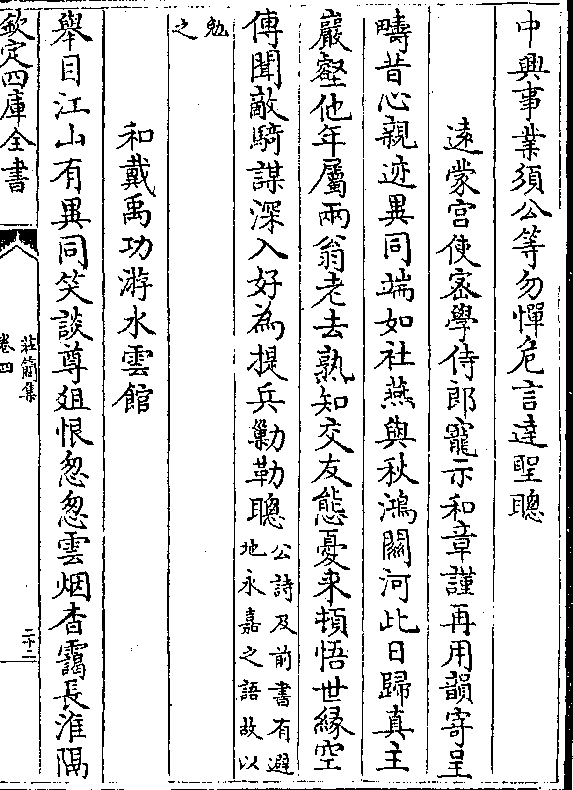 中興事業須公等勿憚危言達聖聰
遠蒙宫使宻學侍郎寵示和章謹再用韻寄呈
疇昔心親迹異同端如社燕與秋鴻闗河此日歸真主
巖壑他年屬兩翁老去孰知交友態憂来頓悟世縁空
傳聞敵騎謀深入好為提兵勦勒聰公詩及前書有避
地永嘉之語故以
勉
之
和戴禹功游水雲館
舉目江山有異同笑談尊俎恨怱怱雲烟杳靄長淮隔
欽定四庫全書
莊簡集
卷四
二十二